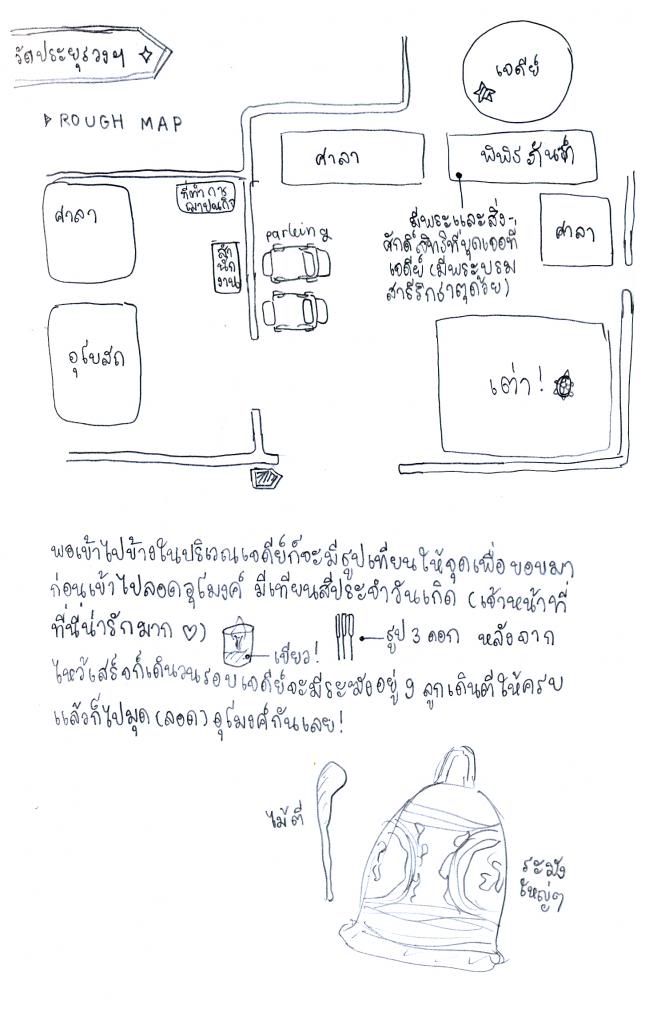 วัดประยุรวงฯ
ROUGH MAP
เจดีย์
ศาลา
พิพิธภัณฑ์
ที่ทำการ
ฌาปนกิจ
ศาลา
parking
มีพระและสิ่ง-
ศักดิ์สิทธิ์ที่ขุดเจอที่
เจดีย์ (มีพระบรม
สารีริกธาตุด้วย)
ศาลา
สำ
นัก
งาน
อุโบสถ
เต่า!
พอเข้าไปข้างในบริเวณเจดีย์ก็จะมีธูปเทียนให้จุดเพื่อขอขมา
ก่อนเข้าไปลอดอุโมงค์ มีเทียนสีประจำวันเกิด (เจ้าหน้าที่
ที่นี่น่ารักมาก ♡)
เขียว!
ธูป 3 ดอก หลังจาก
ไหว้เสร็จก็เดินวนรอบเจดีย์จะมีระฆังอยู่ ๆ ลูกเดินตีให้ครบ
แล้วก็ไปมุด (ลอด) อุโมงค์กันเลย!
ไม้ตี
ระฆัง
ใหญ่ๆ